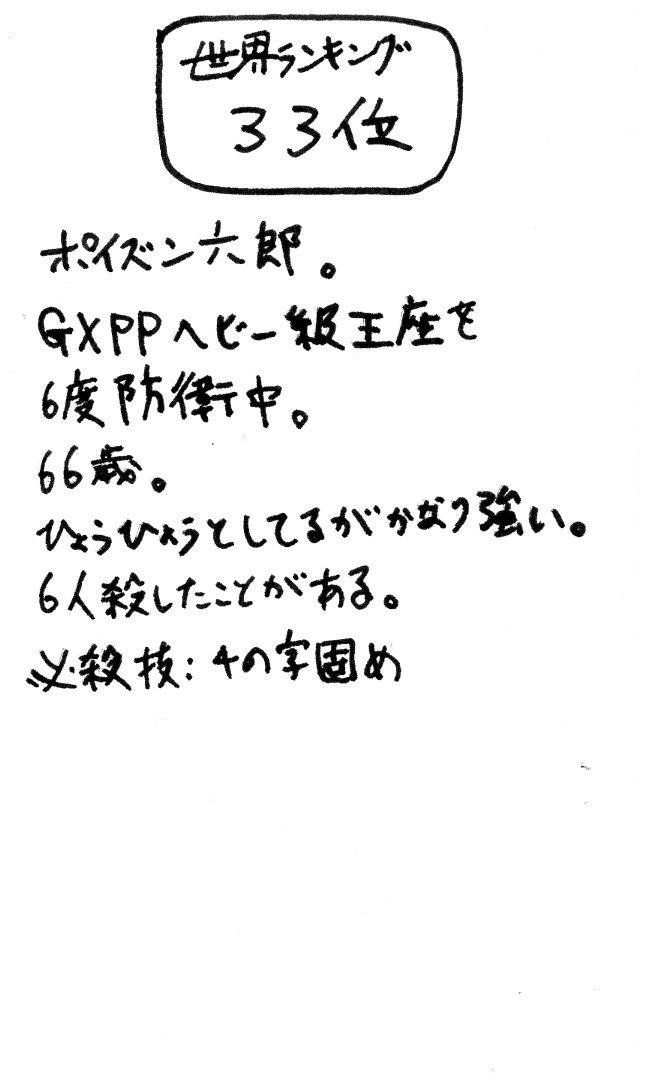 世界ランキング
33位
ポイズン六郎。
GXPPヘビー級王座を
6度防衛中。
66歳。
ひょうひょうとしてるがかなり強い。
6人殺したことがある。
必殺技：4の字固め